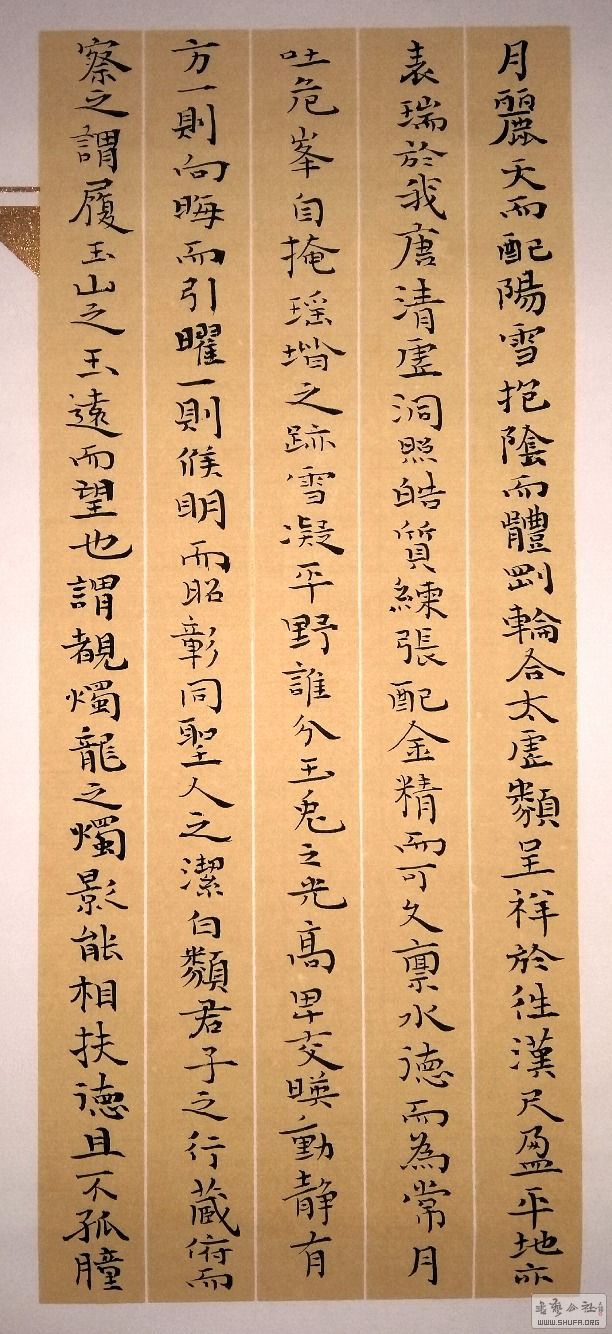 月麗天而配陽雪抱陰而體剛輪合太虛類呈祥於往漢尺盈平地亦
表瑞於我唐清虛洞照皓質練張配金精而可久稟水德而為常月
吐危峯自掩瑶堦之跡雪凝平野誰分玉兎之光高卑交暎動静有
方一則向晦而引曜一則候明而昭彰同聖人之潔白類君子之行藏俯而
察之謂履玉山之玉遠而望也謂覩燭龍之燭影能相扶德且不孤瞳
書藝公社
WWW.SHUFA.ORG